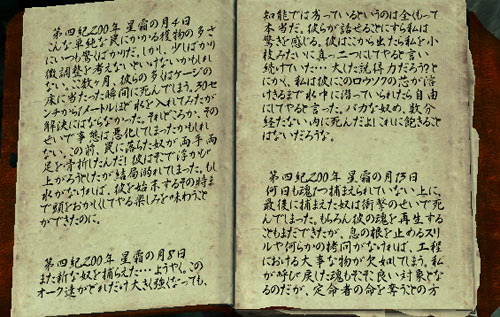 第四紀200年 星霜の月4日
こんな単純な罠にかかる獲物の多さ
にいつも驚くばかりだ。しかし、少しばかり
微調整を考えないといけないかもしれ
ない。ここ数ヶ月、彼らの多くはケージの
床に当たった瞬間に死んでしまう。30セ
ンチから1メートルほど水を入れてみたが
解決にはならなかった。それどころか、その
せいで事態は悪化してしまったかもしれ
ない。この前、罠に落ちた奴が両手両
足を骨折したんだ! 彼はそこで浮かび
上がろうとしたが結局溺れてしまった。も
し水がなければ、彼を始末するその時ま
で頭をおかしくしてやる楽しみを味わうこと
ができたのに。
第四紀200年 星霜の月8日
また新たな奴を捕らえた… ようやく。この
オーク達がどれだけ大きく強くなっても、
知能では劣っているというのは全くもって
本当だ。彼らが話せることにすら私は
驚きを感じる。彼はここから出たら私を小
枝みたいに真っ二つにしてやると言い
続けていた… 大した説得力だろう? と
にかく、私は彼にこのロウソクの芯が溶
けきるまで水中に潜っていられたら自由
にしてやると言った。バカな奴め、数分
経たない内に死んだよ! これに飽きること
はないだろうな。
第四紀200年 星霜の月13日
何日も魂1つ捕まえられていない上に、
最後に捕まえた奴は衝撃のせいで死
んでしまった。もちろん彼の魂を再生する
こともまだできたが、息の根を止めるスリ
ルや何らかの拷問がなければ、工程
における大事な物が欠如してしまう。私
が呼び戻した魂もそこそこ良い対象とな
るのだが、定命者の命を奪うことの方